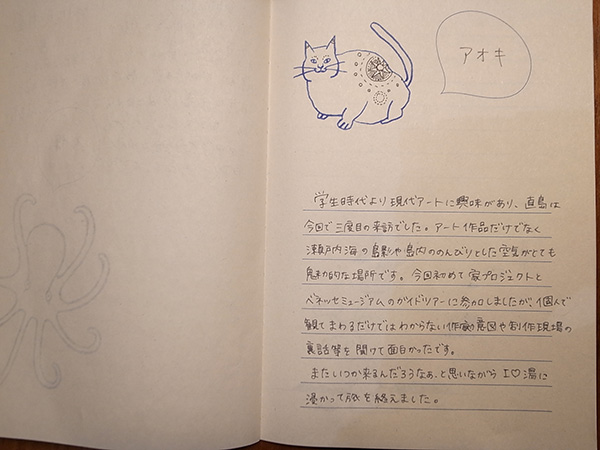 アオキ
学生時代より現代アートに興味があり、直島は
今回で三度目の来訪でした。アート作品だけでなく
瀬戸内海の島影や島内ののんびりとした空気がとても
魅力的な場所です。今回初めて家プロジェクトと
ベネッセミュージアムのガイドツアーに参加しましたが、個人で
観てまわるだけではわからない作家の意図や制作現場の
裏話等を聞けて面白かったです。
またいつか来るんだろうなぁ、と思いながら I♡湯に
浸かって旅を終えました。